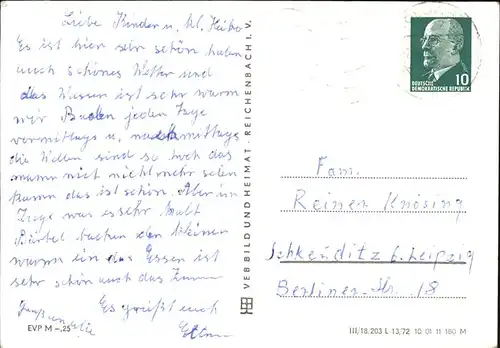 Liebe Kinder u. kl. Heike
Es ist hier sehr schön haben
auch schönes Wetter und
das Wasser ist sehr warm
wir Baden jeden Tage
vormittags u. nachmittags
die Wellen sind so hoch das
mann nicht mehr sehen
kann das ist schön. Aber im
Zuge war es sehr kalt
Bärbel
warm ein das Essen ist
sehr schön auch das
Es grüßt euch
EVP M –,25
VEB BILD UND HEIMAT · REICHENBACH I. V.
10
DEUTSCHE
DEMOKRATISCHE REPUBLIK
Fam.
Reiner Knösing
Schkeuditz b. Leipzig
Berliner-Str. 18
III/18.203 L 13/72 10 01 11 180 M